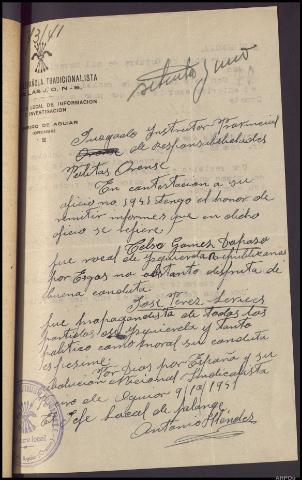 13/41
ESPAÑOLA TRADICIONALISTA
LAS J. O. N-S.
LOCAL DE INFORMACION
INVESTIGACION
DE AGUIAR
(ORENSE)
setenta y uno
Juzgado Instructor Provincial
de responsabilidades
Politicas Orense
En contestacion a su
oficio no 1943 tengo el honor de
remitir informes que en dicho
oficio se refiere.
Celso Gomez Taparo
fue vocal de Izquierda republicana
por no obstante disfruta de
buena conducta
José Perez
fue propagandista de todos los
partidos de Izquierda y tanto
politico como moral su conducta
es pesima.
Por Dios por España y su
revolucion Nacional Sindicalista
de Aguiar 9/12/1941
El Jefe Local de falange
Antonio Mendez